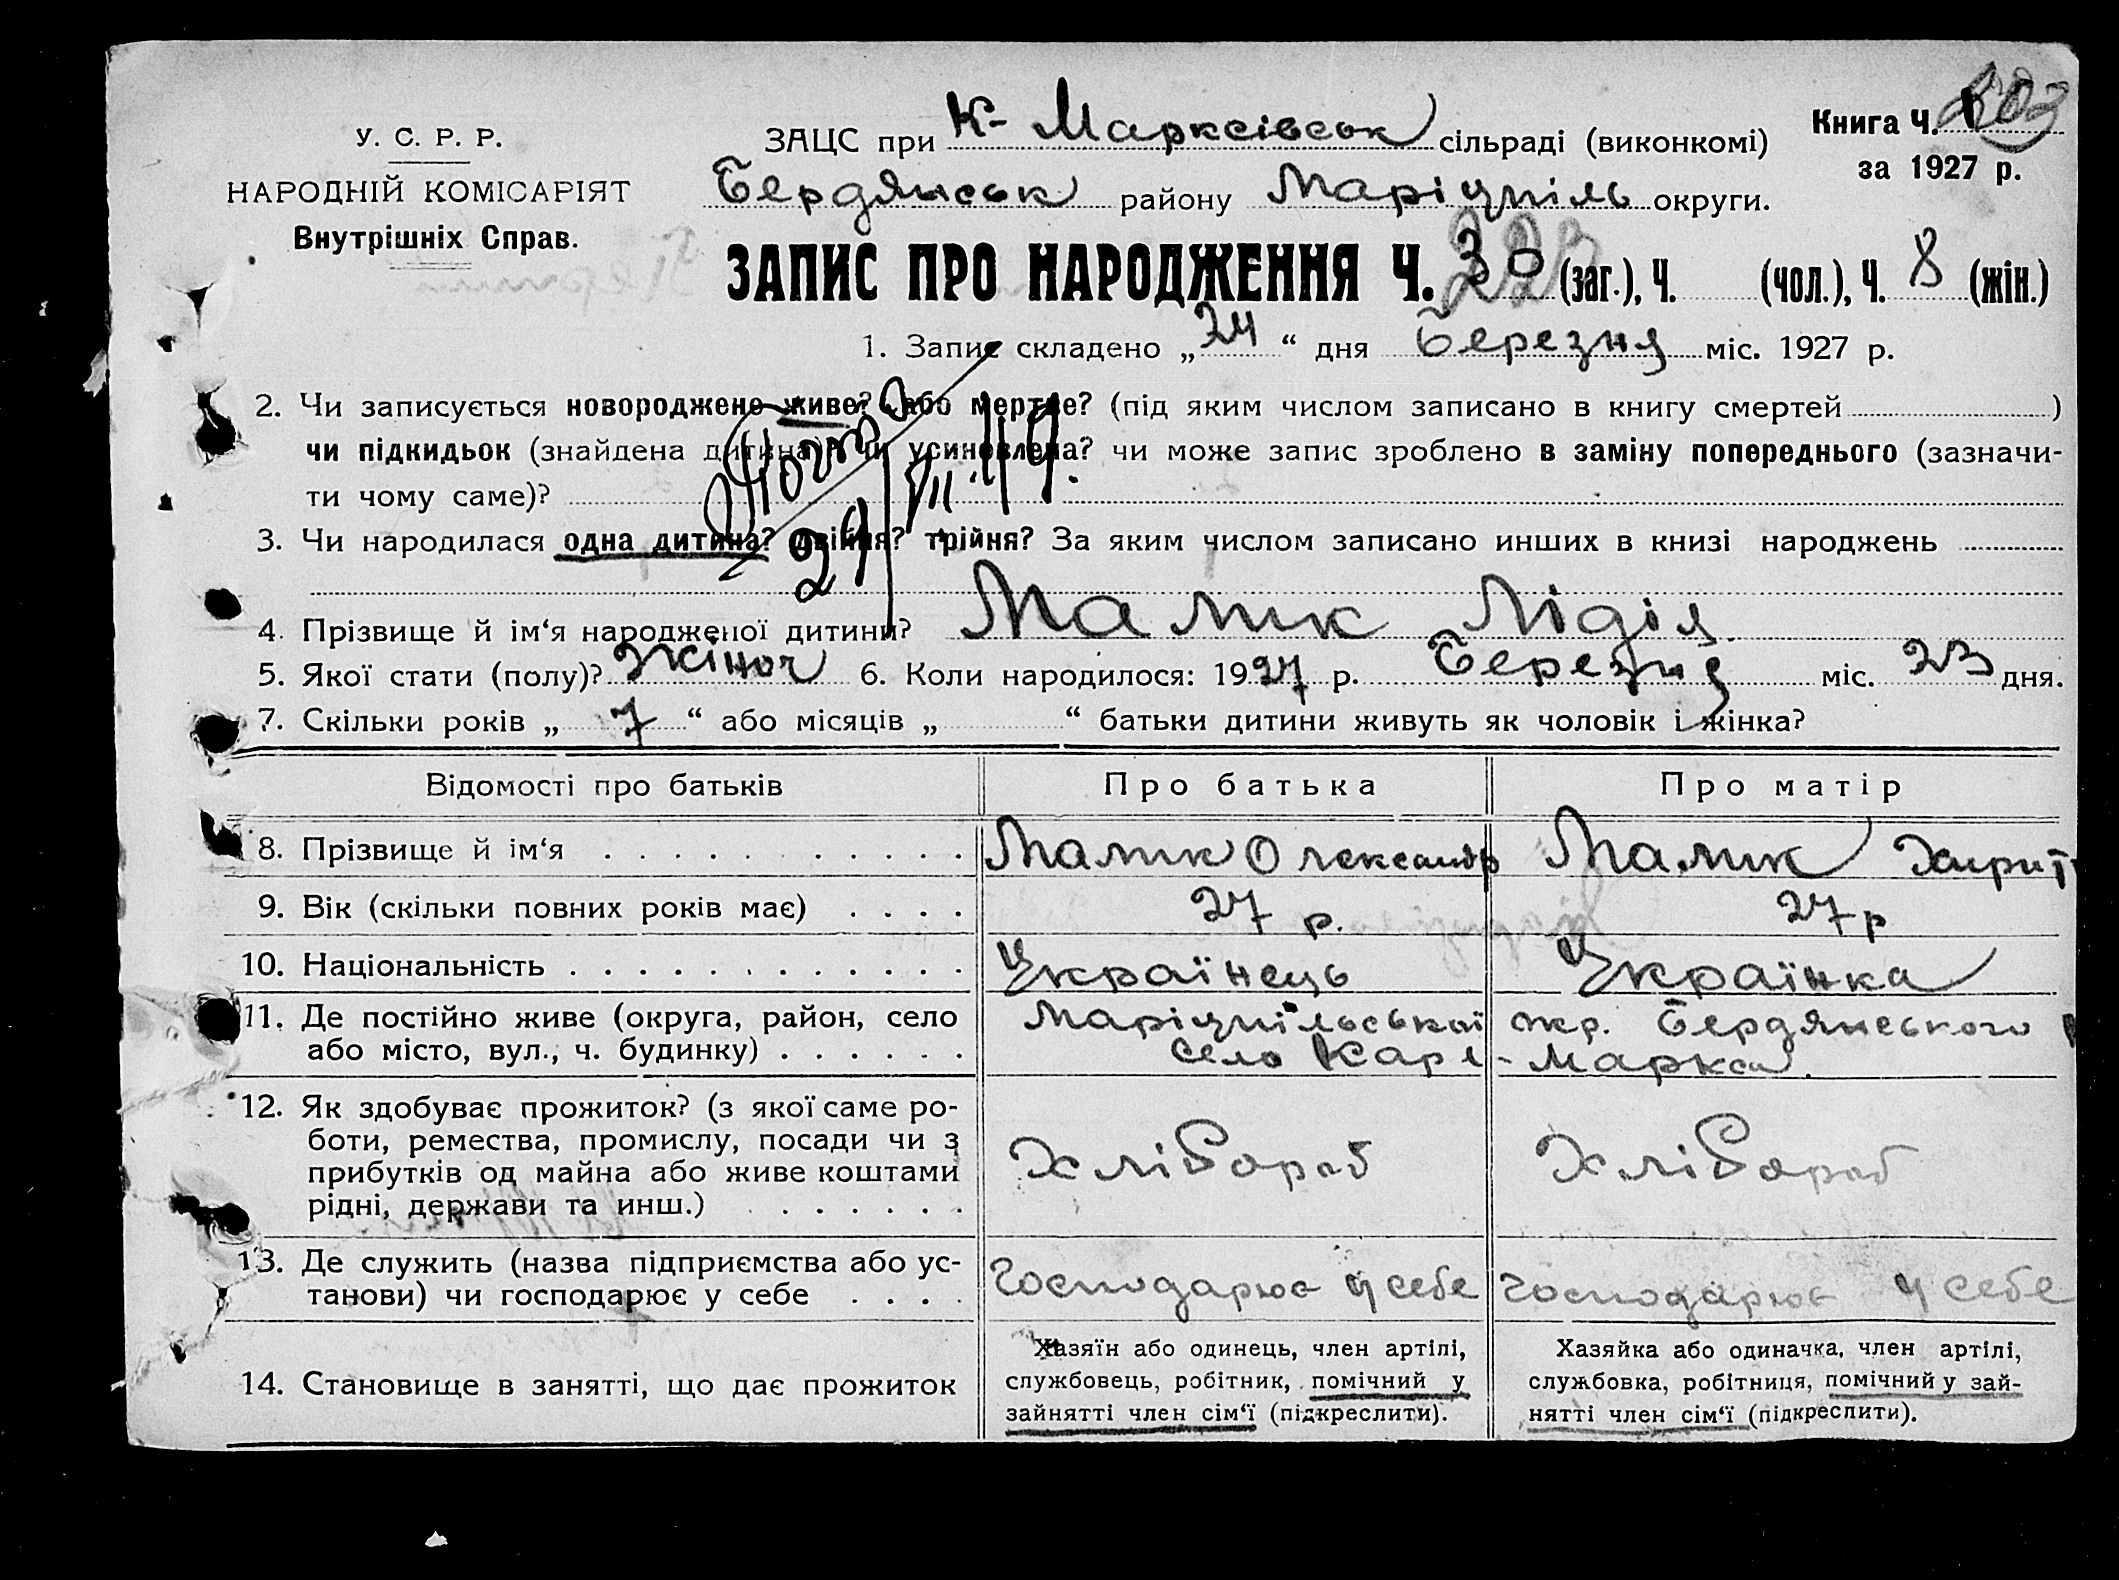 Книга Ч. 1
за 1927 р.
У. С. Р. Р.
НАРОДНІЙ КОМІСАРІЯТ
Внутрішніх Справ.
ЗАЦС при К-Марксівськ сільраді (виконкомі)
Бердянськ району Маріупіль округи.
ЗАПИС ПРО НАРОДЖЕННЯ Ч. 30 (заг.), Ч. (чол.), Ч. 8 (жін.)
1. Запис складено „ 24 “ дня Березня міс. 1927 р.
2. Чи записується новороджене живе? або мертве? (під яким числом записано в книгу смертей )
чи підкидьок (знайдена дитина)? чи усиновлена? чи може запис зроблено в заміну попереднього (зазначи-
ти чому саме)?
3. Чи народилася одна дитина? двійня? трійня? За яким числом записано инших в книзі народжень
4. Прізвище й ім‘я народженої дитини? Малик Лідія
5. Якої стати (полу)? Жіноч 6. Коли народилося: 1927 р. Березня міс. 23 дня.
7. Скільки років „ 7 “ або місяців „ “ батьки дитини живуть як чоловік і жінка?
Відомості про батьків Про батька Про матір
8. Прізвище й ім‘я Малик Олександр Малик
9. Вік (скільки повних років має) 27 р. 27 р
10. Національність Українець Українка
11. Де постійно живе (округа, район, село Маріупільської окр. Бердянського р
або місто, вул., ч. будинку) село Карл-Маркса.
12. Як здобуває прожиток? (з якої саме ро-
боти, ремества, промислу, посади чи з
прибутків од майна або живе коштами
рідні, держави та инш.) Хлібороб Хлібороб
13. Де служить (назва підприємства або ус-
танови) чи господарює у себе Господарює у себе Господарює у себе
14. Становище в занятті, що дає прожиток
Хазяїн або одинець, член артілі,
службовець, робітник, помічний у
зайнятті член сім‘ї (підкреслити).
Хазяйка або одиначка, член артілі,
службовка, робітниця, помічний у зай-
нятті член сім‘ї (підкреслити).